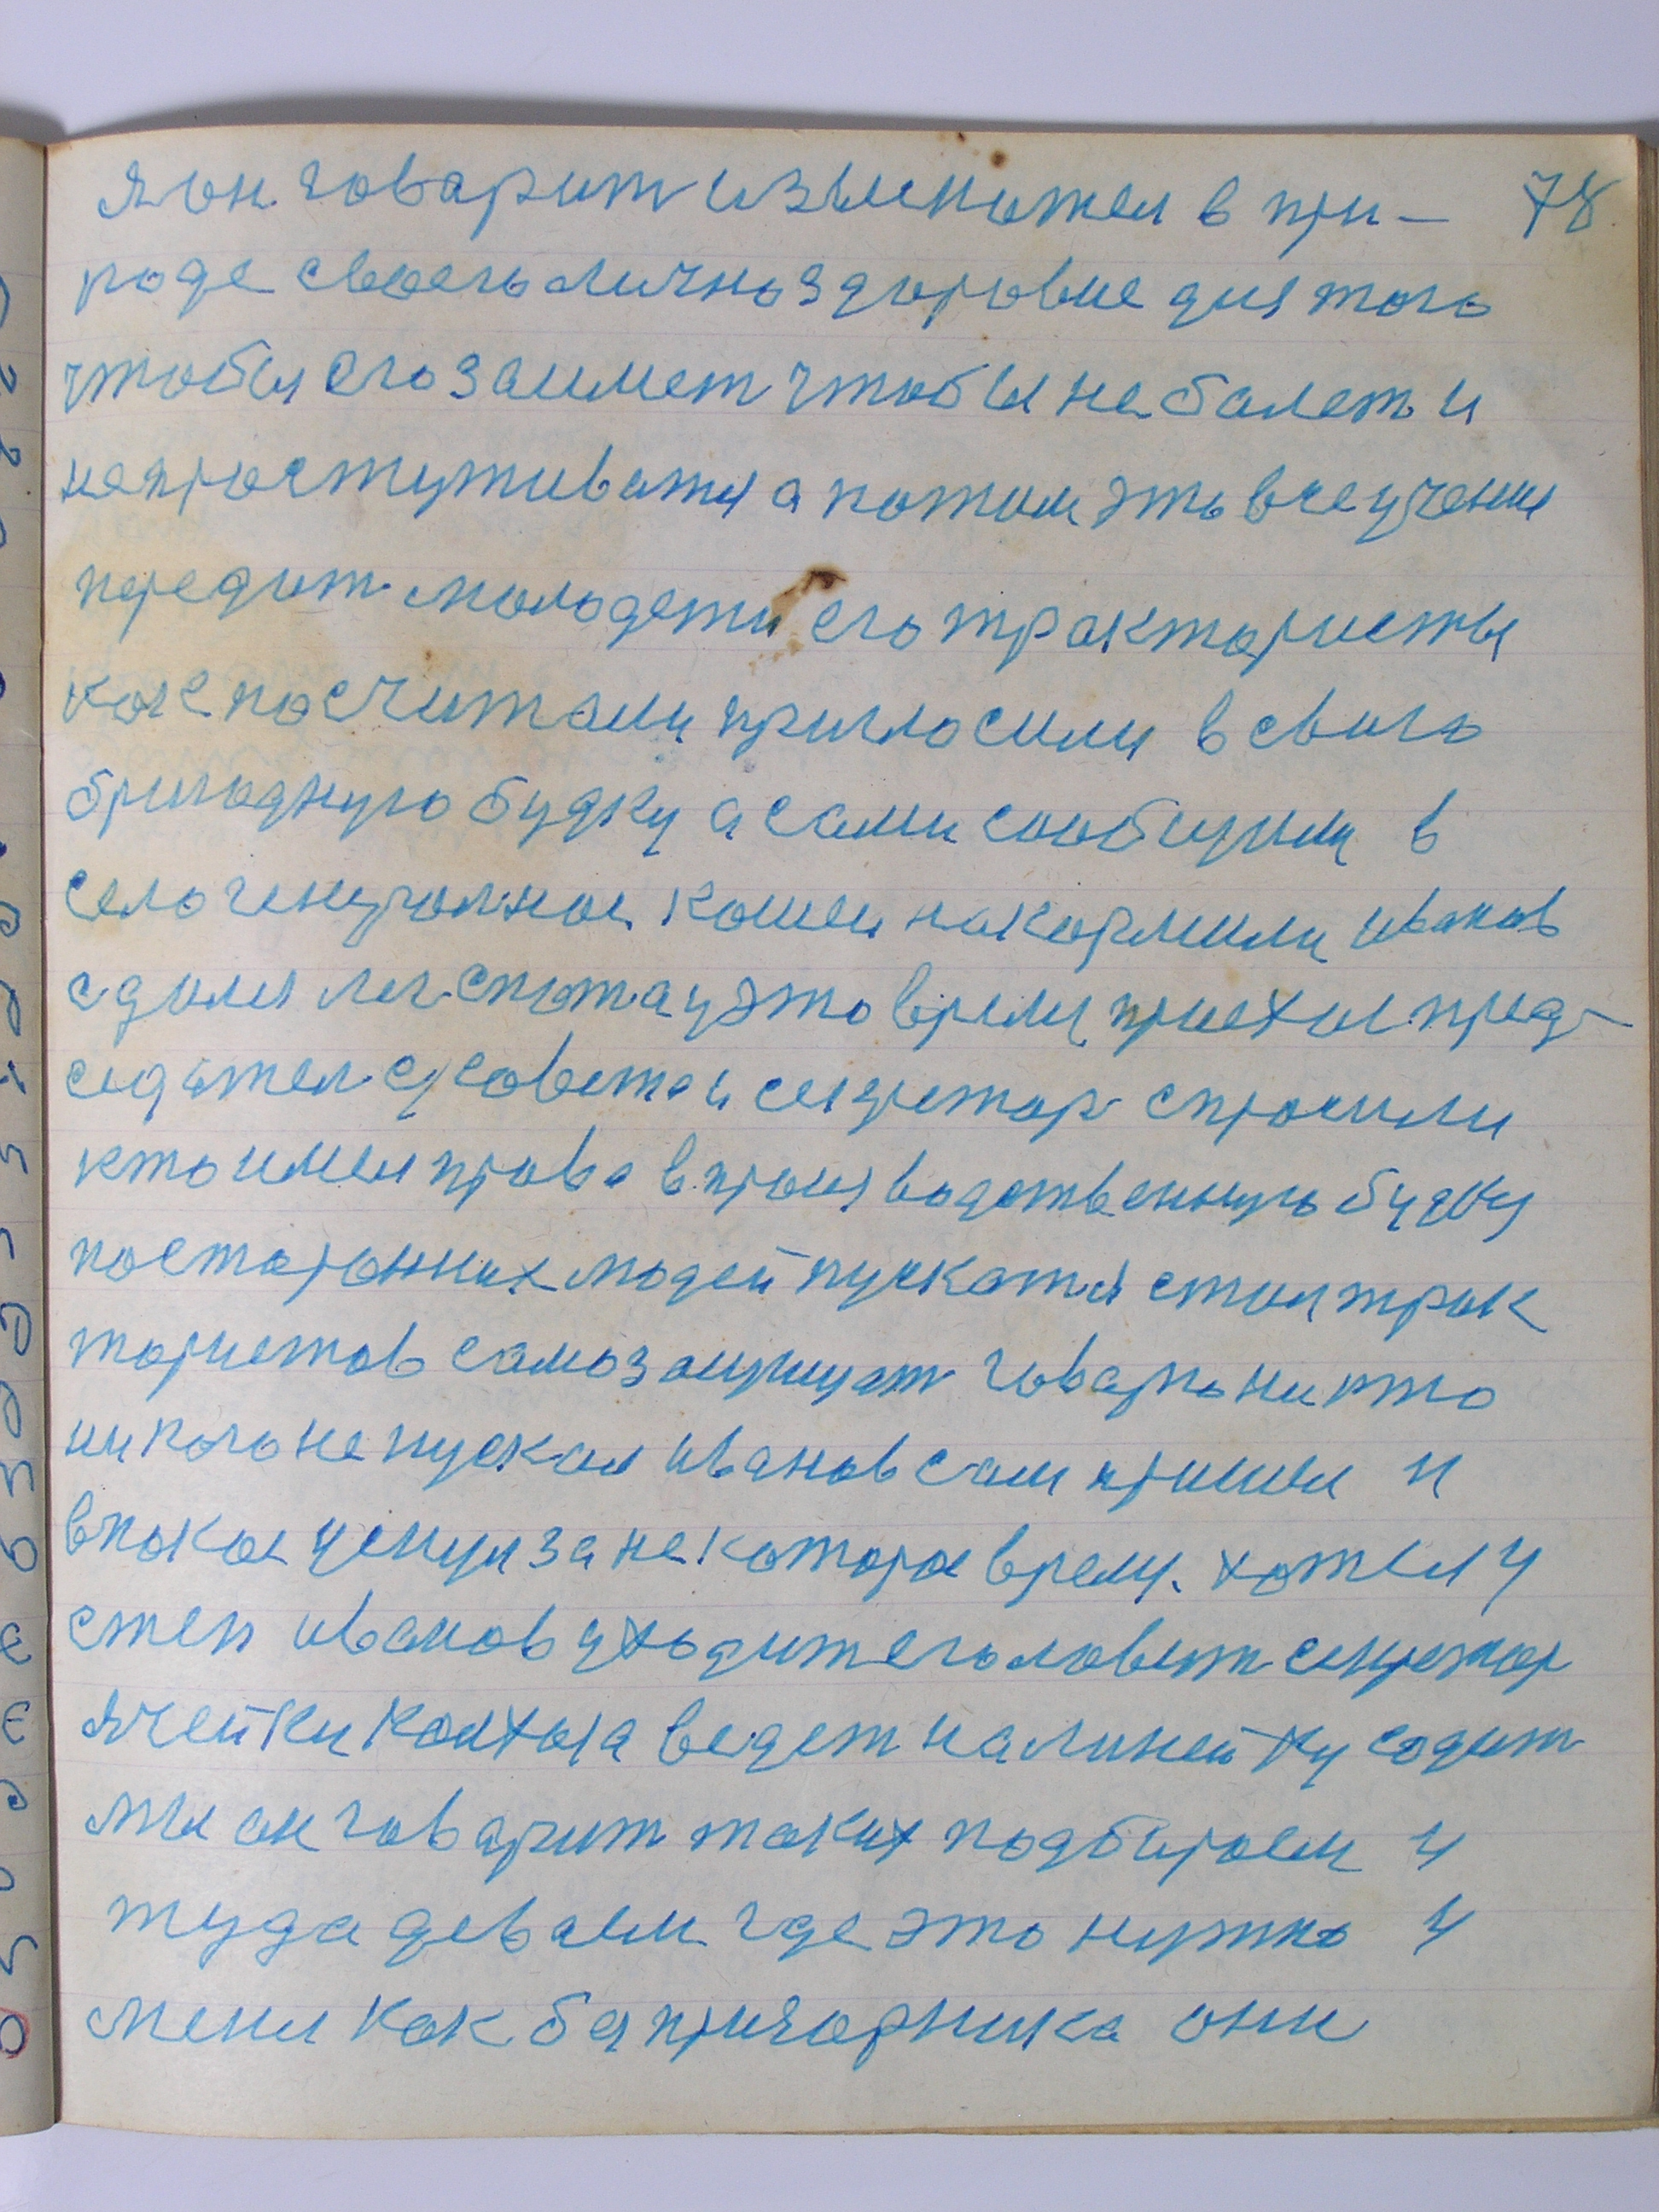 я он говарит изыскател в при- 78
роде своего лично здоровие для того
чтобы его заимет чтобы не балет и
не простуживатя а потом это все учение
передат молодежи его трактористы
как посчитали пригласили в своию
бригадную будку а сами сообщили в
село центральное кашеи накормили иванов
с доми лег спат а у это время приехал пред-
седател с/совета и секретар спросили
кто имеи права в произведственную будку
посторонних людей пускатя стал трак
тористов самозащищат говарь никто
никого не пускал иванов сам пришел и
в покое уснул за некоторое время. хотел у
степ иванов уходит его ловит секретар
ячейки колхоза ведет на линейку содит
мы он говарит таких подбираем и
туда деваем где это нужно и
меня как бапригорника они